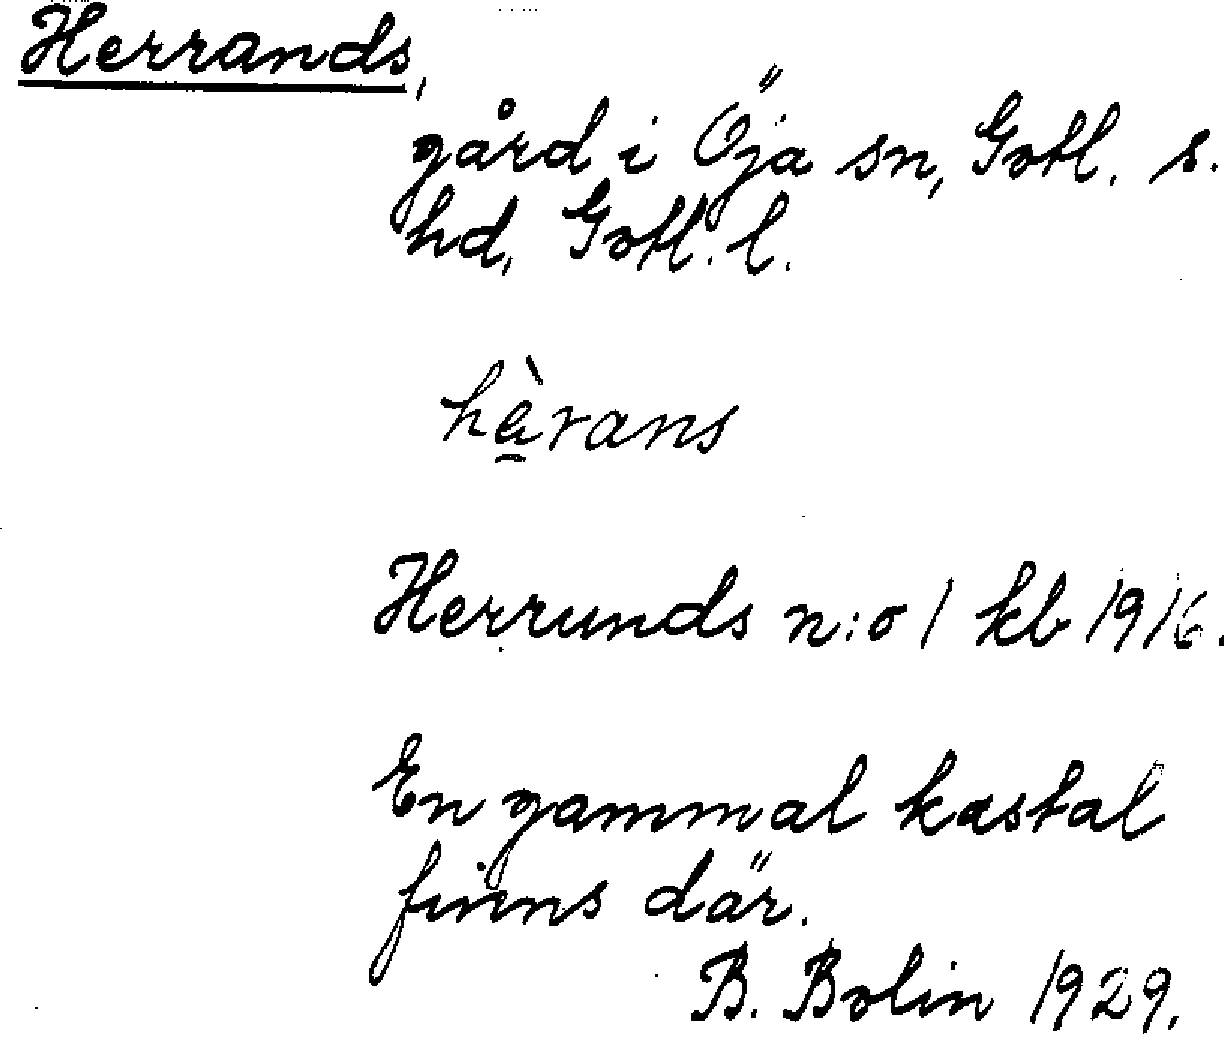 Herrands,
gård i Öja sn, Gotl. s.
hd, Gotl. l.
hä̀rans
Herrunds n:o 1 kb 1916.
En gammal kastal
finns där.
B. Bolin 1929.